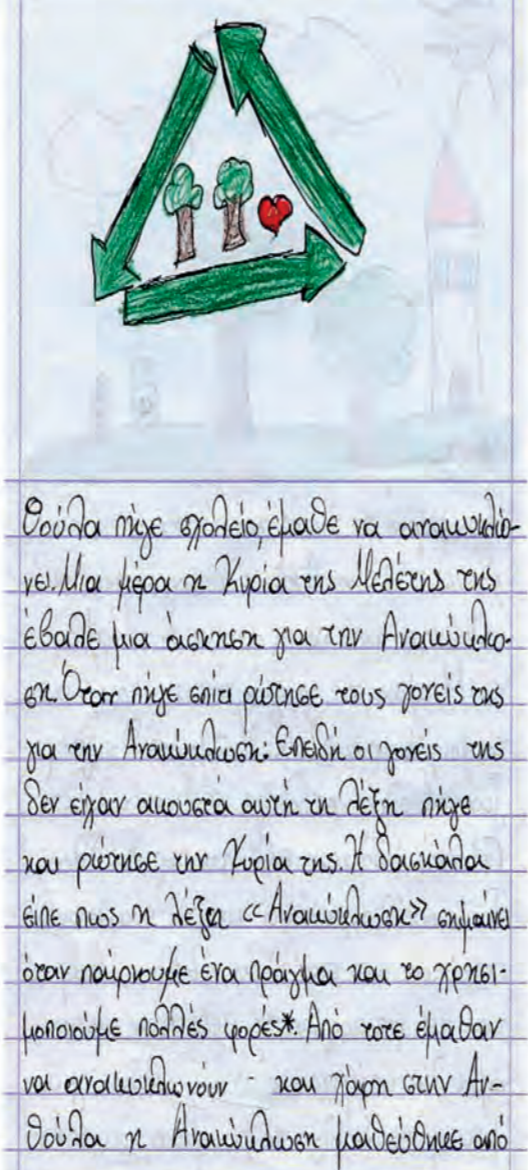 θούλα πήγε σχολείο, έμαθε να ανακυκλώ-
νει. Μια μέρα η Κυρία της Μελέτης της
έβαλε μια άσκηση για την Ανακύκλω-
ση. Όταν πήγε σπίτι ρώτησε τους γονείς της
για την Ανακύκλωση. Επειδή οι γονείς της
δεν είχαν ακουστά αυτή τη λέξη πήγε
και ρώτησε την Κυρία της. Η δασκάλα
είπε πως η λέξη «Ανακύκλωση» σημαίνει
όταν παίρνουμε ένα πράγμα και το χρησι-
μοποιούμε πολλές φορές*. Από τοτε έμαθαν
να ανακυκλωνουν - και χάρη στην Αν-
θούλα η Ανακύκλωση μαθεύθηκε από